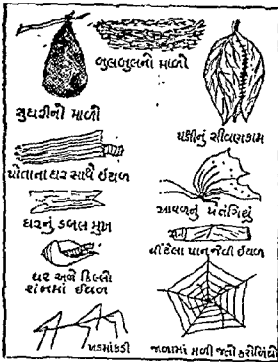 સુઘરીનો માળો
બુલબુલનો માળો
પક્ષીનું સીવણકામ
પોતાના ઘર સાથે ઈયળ
ઘરનું ડબલ મુખ
આવળનું પતંગિયું
વીંટેલા પાન જેવી ઈયળ
ઘર અને કિલ્લો
ઈયળ
ખડમાંકડી
જાળામાં મળી જતી કરોળિયો